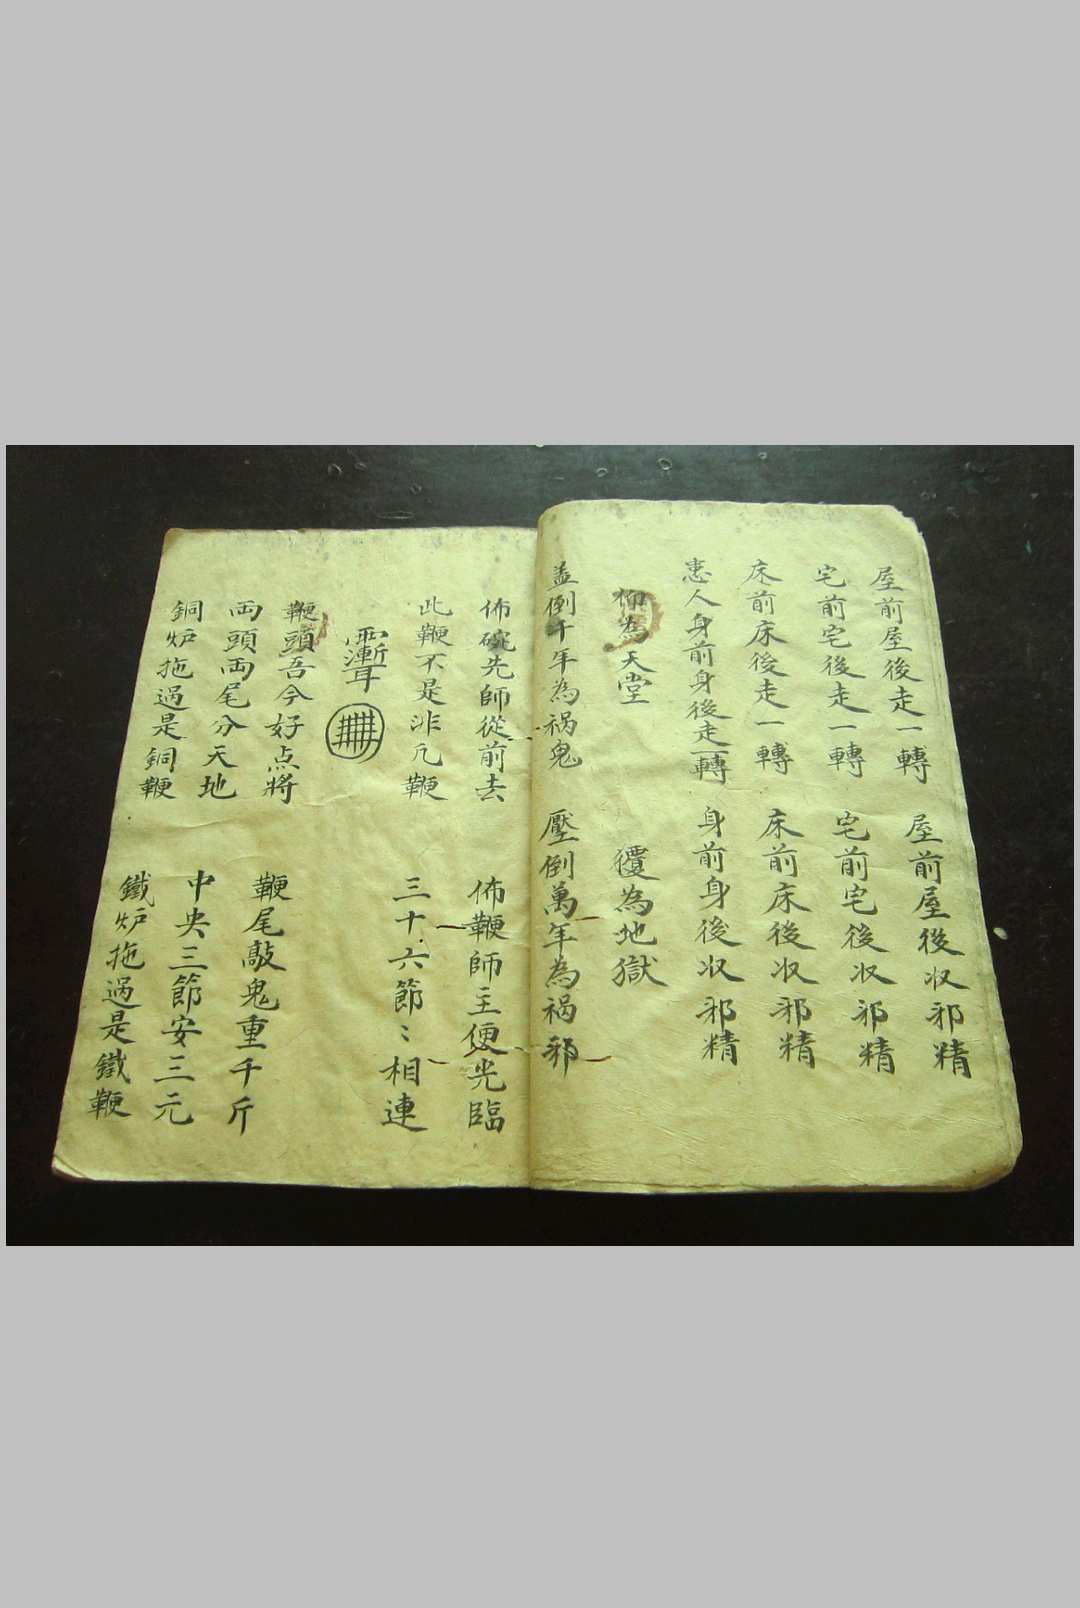 屋前屋後走一轉　屋前屋後収邪精
宅前宅後走一轉　宅前宅後収邪精
床前床後走一轉　床前床後収邪精
患人身前身後走一轉　身前身後収邪精
仰為天堂　覆為地獄
盖倒千年為祸鬼　壓倒萬年為祸邪
佈碗先師從前去　佈鞭師主便光臨
此鞭不是非凢鞭　三十六節〻相連
鞭頭吾今好点將　鞭尾敲鬼重千斤
両頭両尾分天地　中央三節安三元
銅炉拖過是銅鞭　鐵炉拖過是鐵鞭